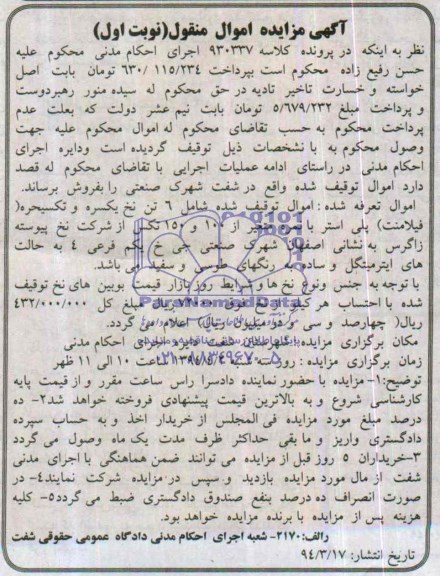 آگهی مزایده اموال منقول(نوبت اول)
نظر به اینکه در پرونده کلاسه ۹۳۰۳۳۷ اجرای احکام مدنی محکوم علیه
حسن رفیع زاده محکوم است بپرداخت ۱۱۵/۲۳۴ /۶۳۰ تومان بابت اصل
خواسته و خسارت تاخیر تادیه در حق محکوم له سیده منور رهبردوست
و پرداخت مبلغ ۵/۶۷۹/۲۳۲ تومان بابت نیم عشر دولت که بعلت عدم
پرداخت محکوم به حسب تقاضای محکوم له اموال محکوم علیه جهت
وصول محکوم به با نشخصات ذیل توقیف گردیده است ودایره اجرای
احکام مدنی در راستای ادامه عملیات اجرایی با تقاضای محکوم له قصد
دارد اموال توقیف شده واقع در شفت شهرک صنعتی را بفروش برساند.
اموال تعرفه شده : اموال توقیف شده شامل ۶ تن نخ یکسره و تکسیحره(
فیلامنت) پلی استر با متغیر از ۱۰۰ و ۱۵۰ تکسچر از شرکت نخ پیوسته
زاگرس به نشانی اصفهان شهرک صنعتی جی خ یکم فرعی ۴ به حالت
های اینترمینگل و ساده به رنگهای طوسی و سفید می باشد.
با توجه به جنس ونوع نخ ها و شرایط روز بازار قیمت بوبین های نخ توقیف
شده با احتساب هر کیلو نخ مبلغ کل ۴۳۲/۰۰۰/۰۰۰
ریال( چهارصد و سی و دو میلیون ریال) اعلام می گردد.
مکان برگزاری مزایده : شهرستان شفت دایره اجرای احکام مدنی
زمان برگزاری مزایده : روز سه شنبه ساعت ۱۰ الی ۱۱ ظهر
توضیح:۱- مزایده با حضور نماینده دادسرا راس ساعت مقرر و از قیمت پایه
کارشناسی شروع و به بالاترین قیمت پیشنهادی فروخته خواهد شد۲- ده
درصد مبلغ مورد مزایده فی المجلس از خریدار اخذ و به حساب سپرده
دادگستری واریز و ما بقی حداکثر ظرف مدت یک ماه وصول می گردد
۳-خریداران ۵ روز قبل از مزایده می توانند ضمن هماهنگی با اجرای مدنی
شفت از مال مورد مزایده بازدید و سپس در مزایده شرکت نمایند۴- در
صورت انصراف ده درصد بنفع صندوق دادگستری ضبط می گردد۵- کلیه
هزینه پس از مزایده با برنده مزایده خواهد بود.
رالف:۲۱۷۰- شعبه اجرای احکام مدنی دادگاه عمومی حقوقی شفت
تاریخ انتشار: ۹۴/۳/۱۷
ParsNamadData
۰۲۱-۸۸۳۴۹۶۷۰-۵